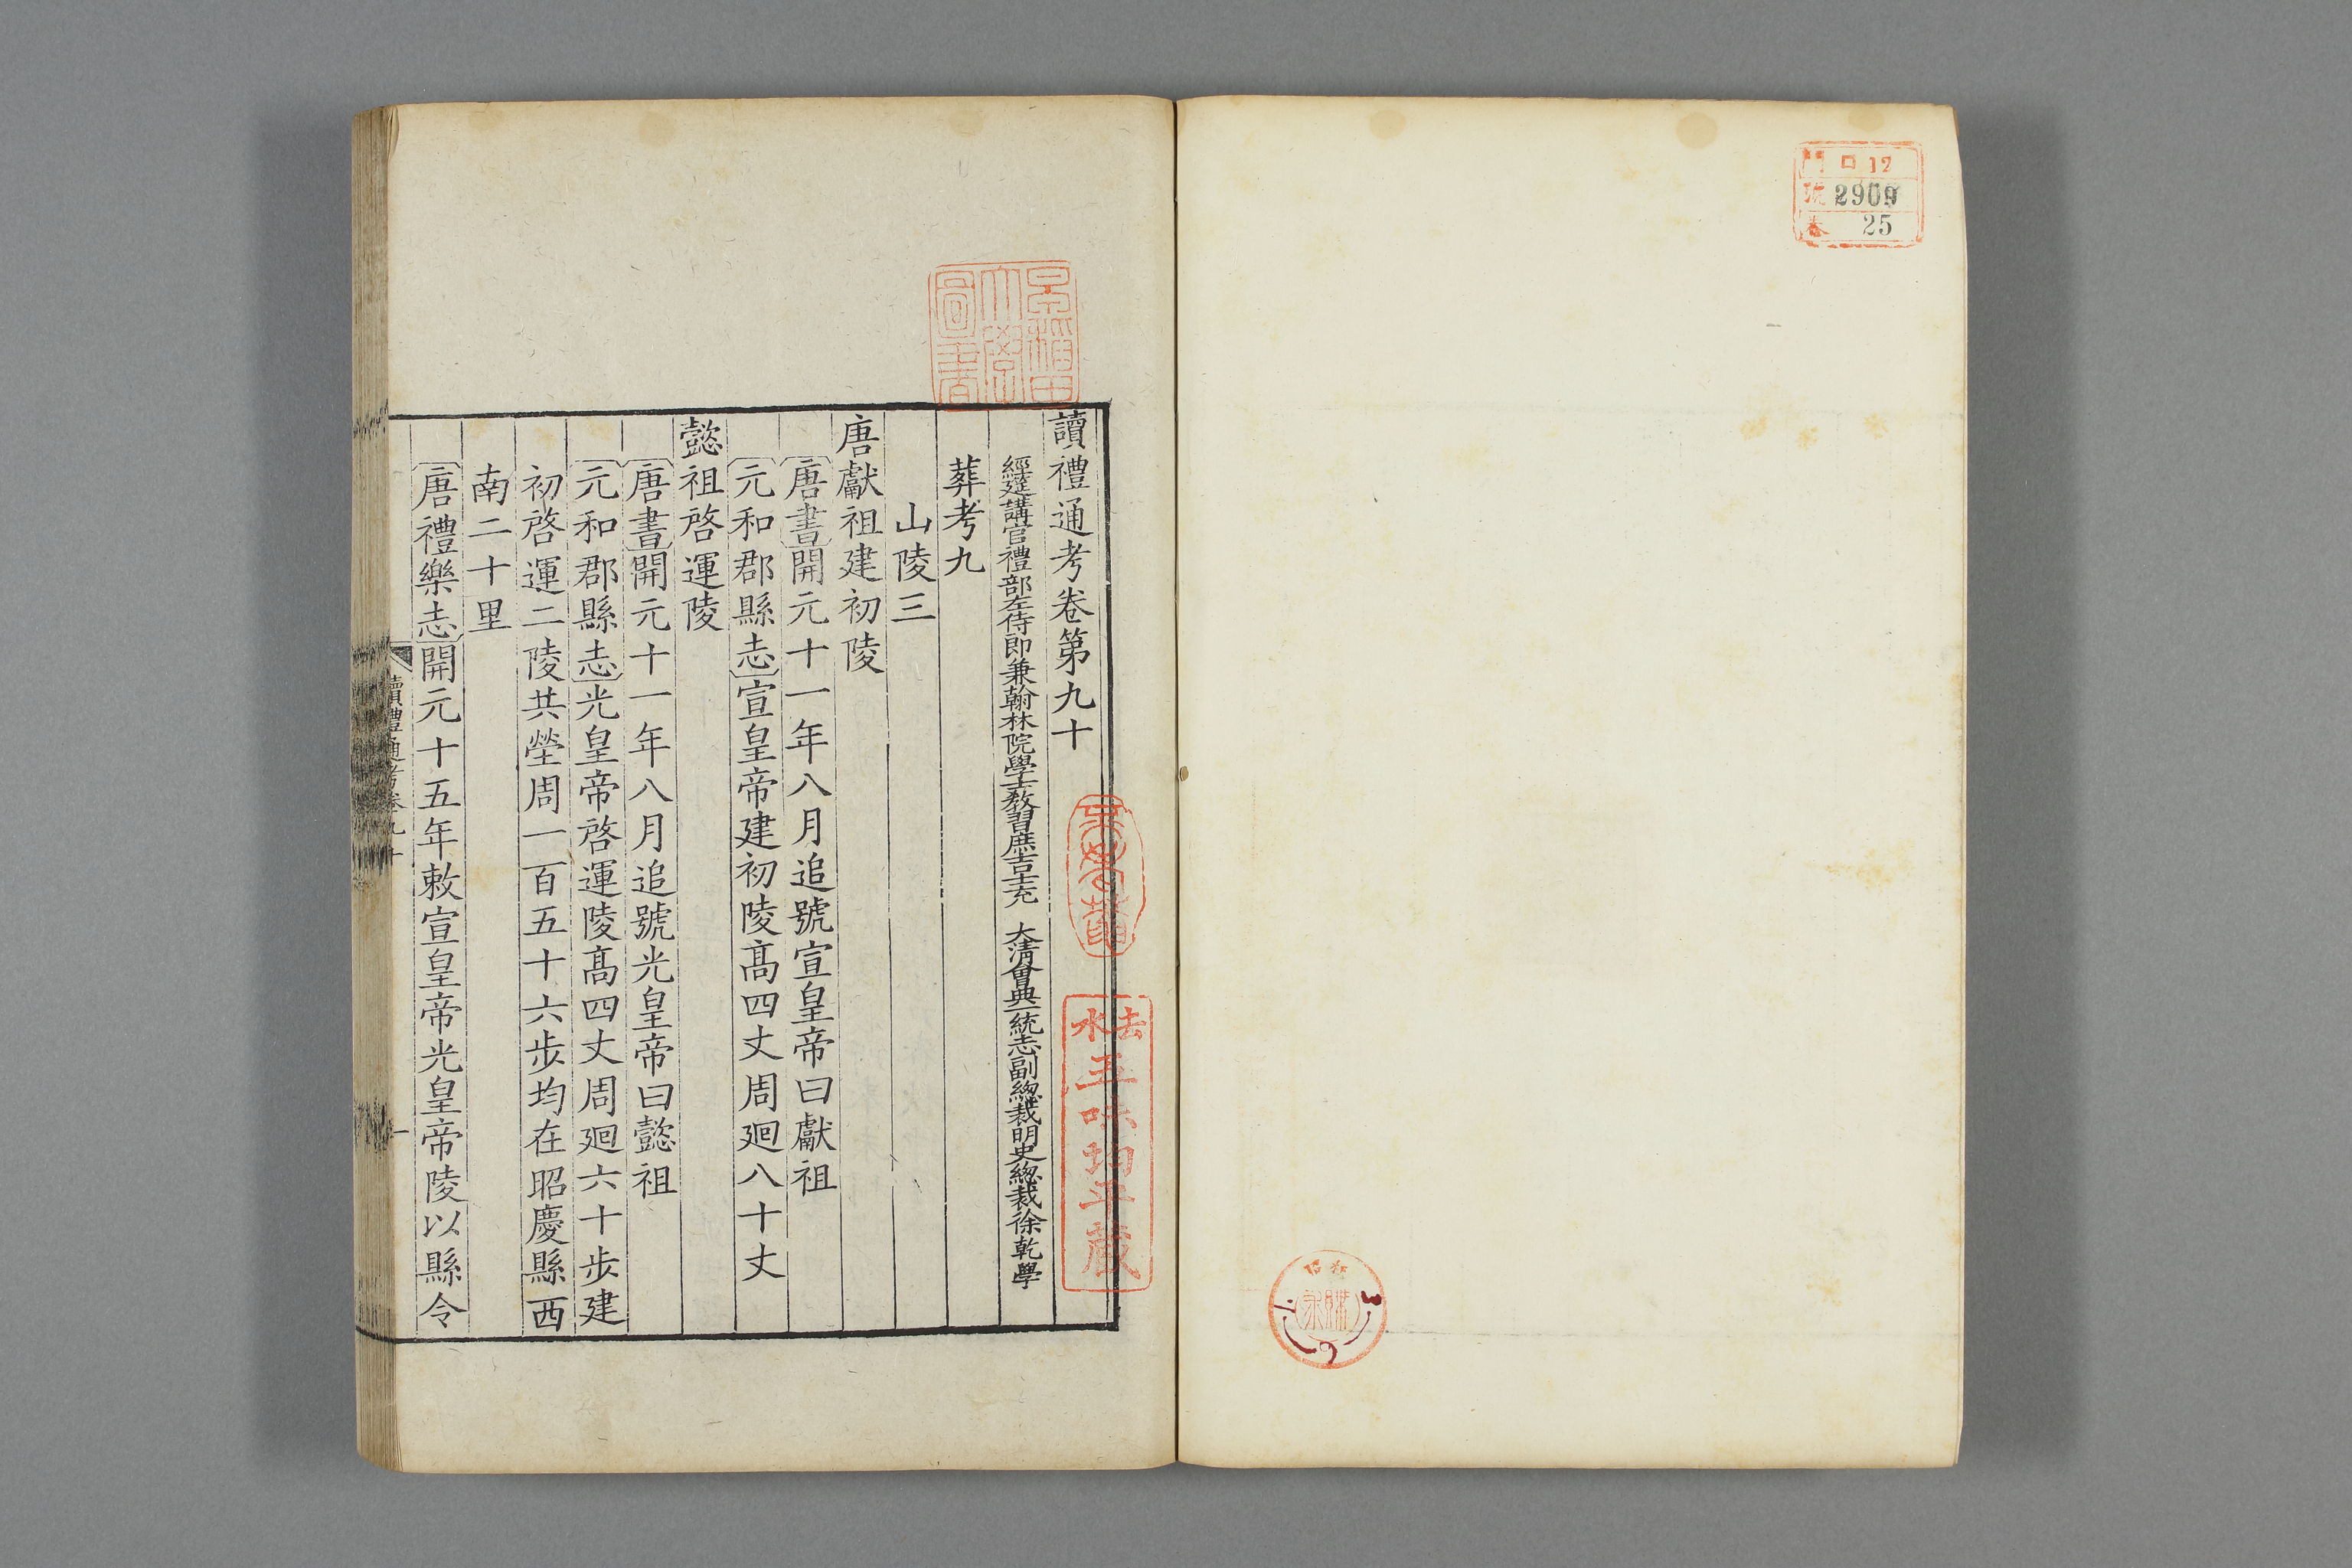 門 ロ 12
號 2909
卷 25
早稲田
大學
圖書
讀禮通考卷第九十
經筵講官禮部左侍郎兼翰林院學士教習庶吉士充 大清會典一統志副總裁明史總裁徐乾學
葬考九
山陵三
唐獻祖建初陵
〔唐書〕開元十一年八月追號宣皇帝曰獻祖
〔元和郡縣志〕宣皇帝建初陵髙四丈周廻八十丈
懿祖啓運陵
〔唐書〕開元十一年八月追號光皇帝曰懿祖
〔元和郡縣志〕光皇帝啓運陵髙四丈周廻六十步建
初啓運二陵共塋周一百五十六步均在昭慶縣西
南二十里
〔唐禮樂志〕開元十五年敕宣皇帝光皇帝陵以縣令
讀禮通考卷九十
一
五味均平蔵